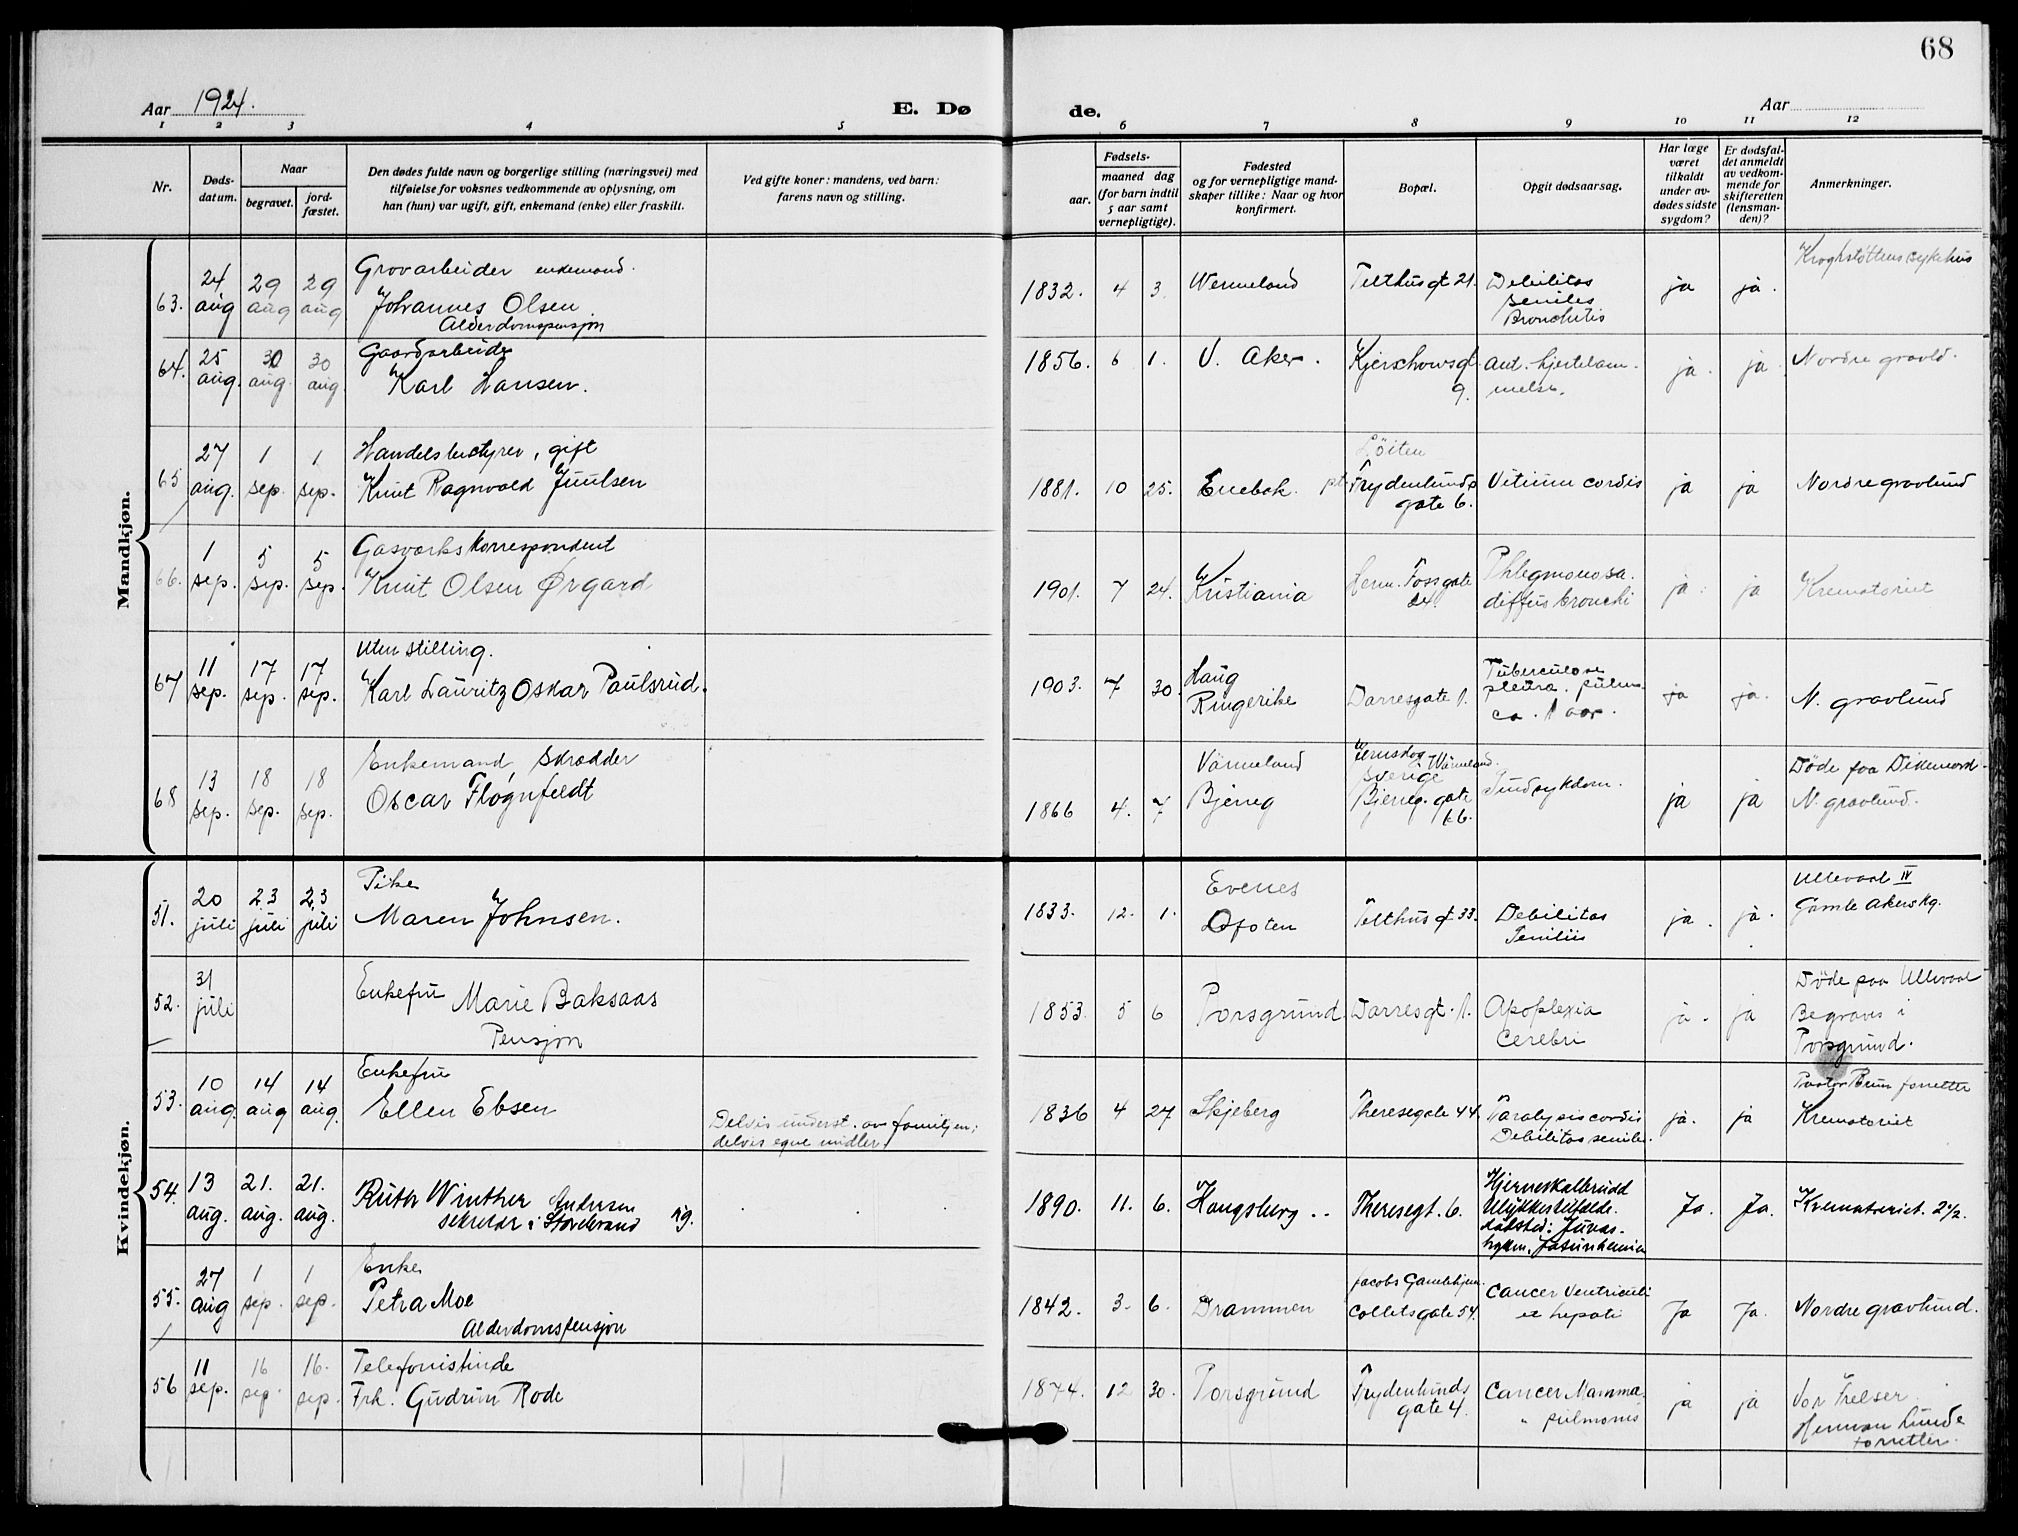 68
Aar 1924. E. Dø de. Aar
1 2 3 4 5 6 7 8 9 10 11 12
Nr.
Døds-
datum.
Naar
begravet.
jord-
fæstet.
Den dødes fulde navn og borgerlige stilling (næringsvei) med
tilføielse for voksnes vedkommende av oplysning, om
han (hun) var ugift, gift, enkemand (enke) eller fraskilt.
Ved gifte koner: mandens, ved barn:
farens navn og stilling.
Fødsels-
aar.
maaned dag
(for barn indtil
5 aar samt
vernepligtige).
Fødested
og for vernepligtige mand-
skaper tillike: Naar og hvor
konfirmert.
Bopæl.
Opgit dødsaarsag.
Har læge
været
tilkaldt
under av-
dødes sidste
sygdom?
Er dødsfal-
det anmeldt
av vedkom-
mende for
skifteretten
(lensman-
den)?
Anmerkninger.
Mandkjøn.
63.
24
aug
29
aug
29
aug
Grovarbeider enkemand.
Johannes Olsen
Alderdomspensjon
1832. 4 3.
Wermeland
Telthusgt 21.
Debilitas
seniles
Bronchitis
ja
ja.
Kroghstøttens sykehus
64.
25
aug.
30
aug.
30
aug.
Gaardarbeider
Karl Hansen.
1856. 6 1.
V. Aker.
Kjerschowsgt.
9.
ant. hjertelam-
melse.
ja.
ja.
Nordre gravld.
65
27
aug.
1
sep.
1
sep.
Handelsbestyrer, gift
Knut Ragnvald Juulsen
1881. 10 25.
Enebak.
Løiten
pt Frydenlunds
gate 6.
Vitium cordis
ja
ja
Nordre gravlund
66.
1
sep.
5
sep.
5
sep.
Gasværkskorrespondent
Knut Olsen Ørgard
1901. 7 24.
Kristiania
Herm. Fossgate
24.
Phlegmonosa.
diffus bronchi
ja
ja
Krematoriet
67
11
sep.
17
sep.
17
sep.
Uten stilling.
Karl Lauritz Oskar Paulsrud.
1903. 7 30.
Haug
Ringerike
Darresgate 1.
Tuberculose
pleura. pulm.
ca. 1 aar.
ja
ja.
N. gravlund
68
13
sep.
18
sep.
18
sep.
Enkemand, skrædder
Oscar Flognfeldt
1866 4. 7
Värmeland
Bjerreg
Värmeland.
Sverige
Bjerreg. gate
Sindsykdom.
ja
ja
Døde paa Dikemark.
N. gravlund.
Kvindekjøn.
51.
20
juli
23
juli
23
juli
Pike
Maren Johnsen.
1833. 12. 1.
Evenes
Ofoten
Telthusgt. 33.
Debilitas
Seniliis
ja.
ja.
Ullevaal IV
Gamle Akers kg.
52.
31
juli
Enkefru Marie Baksaas
Pensjon
1853. 5 6
Porsgrund
Darresgt. 1.
Apoplexia
Cerebri
ja.
ja
Døde paa Ullevaal
Begraves i
Porsgrund.
53.
10
aug.
14
aug
14
aug.
Enkefru
Ellen Ebsen
Delvis underst. av familjen;
delvis egne midler.
1836 4 27
Skjeberg
Theresegate 44.
Paralysis cordis
Debilitas senilis.
ja.
ja
Pastor Bruun forretter
Krematoriet
54.
13
aug.
21.
aug.
21.
aug.
Ruth Winther Andersen
sekretær i Storebrand ug.
1890. 11. 6.
Kongsberg..
Theresegt. 6.
Hjerneskalbrudd
Ulykkestilfelde.
dødssted: Juvas-
hyten, Jotunheimen
Ja.
Ja.
Krematoriet. 2½.
55.
27
aug
1
sep.
1
sep.
Enke
Petra Moe
Alderdomspensjon
1842. 3. 6.
Drammen
Jacobs Gamlehjem.
Colletsgate 54.
Cancer Ventriculi
et hepati
Ja
Ja.
Nordre gravlund.
56
11
sep.
16
sep.
16.
sep.
Telefonistinde
Frk. Gudrun Rode
1874. 12 30.
Porsgrund
Frydenlunds
gate 4.
Cancer Mamma.
" pulmonis
ja
ja
Vor Frelser
Herman Lunde
forretter.